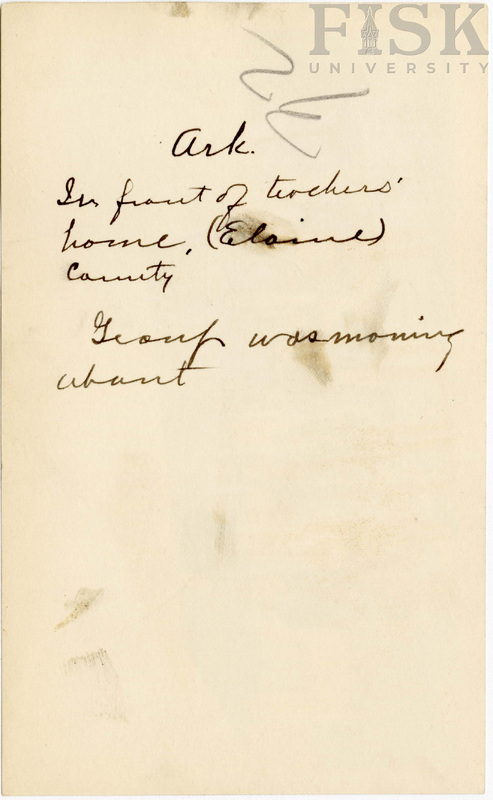 FISK
UNIVERSITY
Ark.
In front of teachers'
home, (Elaine)
County
Group was moving
about